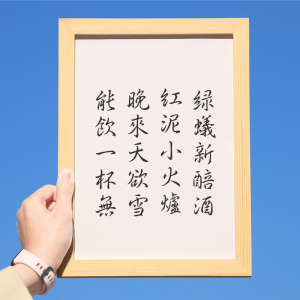 绿蟻新醅酒
紅泥小火爐
晚來天欲雪
能飲一杯無